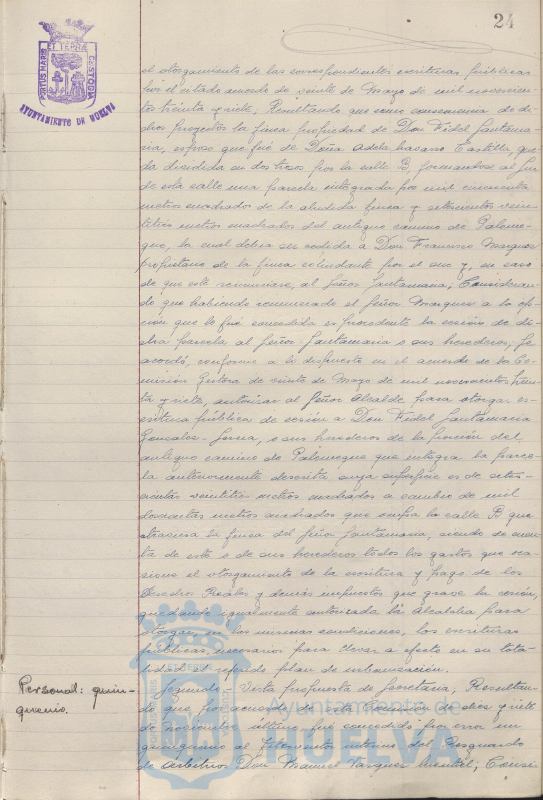 24
PORTUS MARIS ET TERRAE CUSTODIA
AYUNTAMIENTO DE HUELVA
el otorgamiento de las correspondientes escrituras públicas
por el citado acuerdo de veinte de Mayo de mil novecien-
tos treinta y siete; Resultando que como consecuencia de di-
chos proyectos la finca propiedad de Don Fidel Santama-
ria, esposo que fué de Doña Adela Castilla, que-
da dividida en dos trozos por la calle B, formandose al Sur
de esta calle una parcela integrada por mil cincuenta
metros cuadrados de la aludida finca y setecientos vein-
titres metros cuadrados del antiguo camino de Palome-
que, la cual debia ser cedida a Don Francisco Marquez
propietario de la finca colindante por el sur y, en caso
de que este renunciase, al Señor Santamaria; Consideran-
do que habiendo renunciado el Señor Marquez a la op-
ción que le fué concedida es procedente la cesión de di-
cha parcela al Señor Santamaria o sus herederos; Se
acordó, conforme a lo dispuesto en el acuerdo de la Co-
misión Gestora de veinte de Mayo de mil novecientos trein-
ta y siete, autorizar al Señor Alcalde para otorgar es-
critura pública de cesión a Don Fidel Santamaria
Gonzalez-Serna, o sus herederos de la porción del
antiguo camino de Palomeque que integra la parce-
la anteriormente descrita cuya superficie es de sete-
cientos veintitres metros cuadrados a cambio de mil
doscientos metros cuadrados que ocupa la calle B que
atraviesa la finca del Señor Santamaria, siendo de cuen-
ta de este o de sus herederos todos los gastos que oca-
sione el otorgamiento de la escritura y pago de los
Derechos Reales y demás impuestos que grave la cesión,
quedando igualmente autorizada la Alcaldia para
otorgar, en las mismas condiciones, las escrituras
públicas necesarias para llevar a efecto en su tota-
lidad el referido plan de urbanización.
Personal: quin-
quenio.
Segundo. Vista propuesta de Secretaria; Resultan-
do que por acuerdo de esta Comisión de diez y siete
de noviembre último fué concedido por error un
quinquenio al Interventor interino del Resguardo
de Arbitrios Don Manuel Vazquez; Consi-
Ayuntamiento de
HUELVA